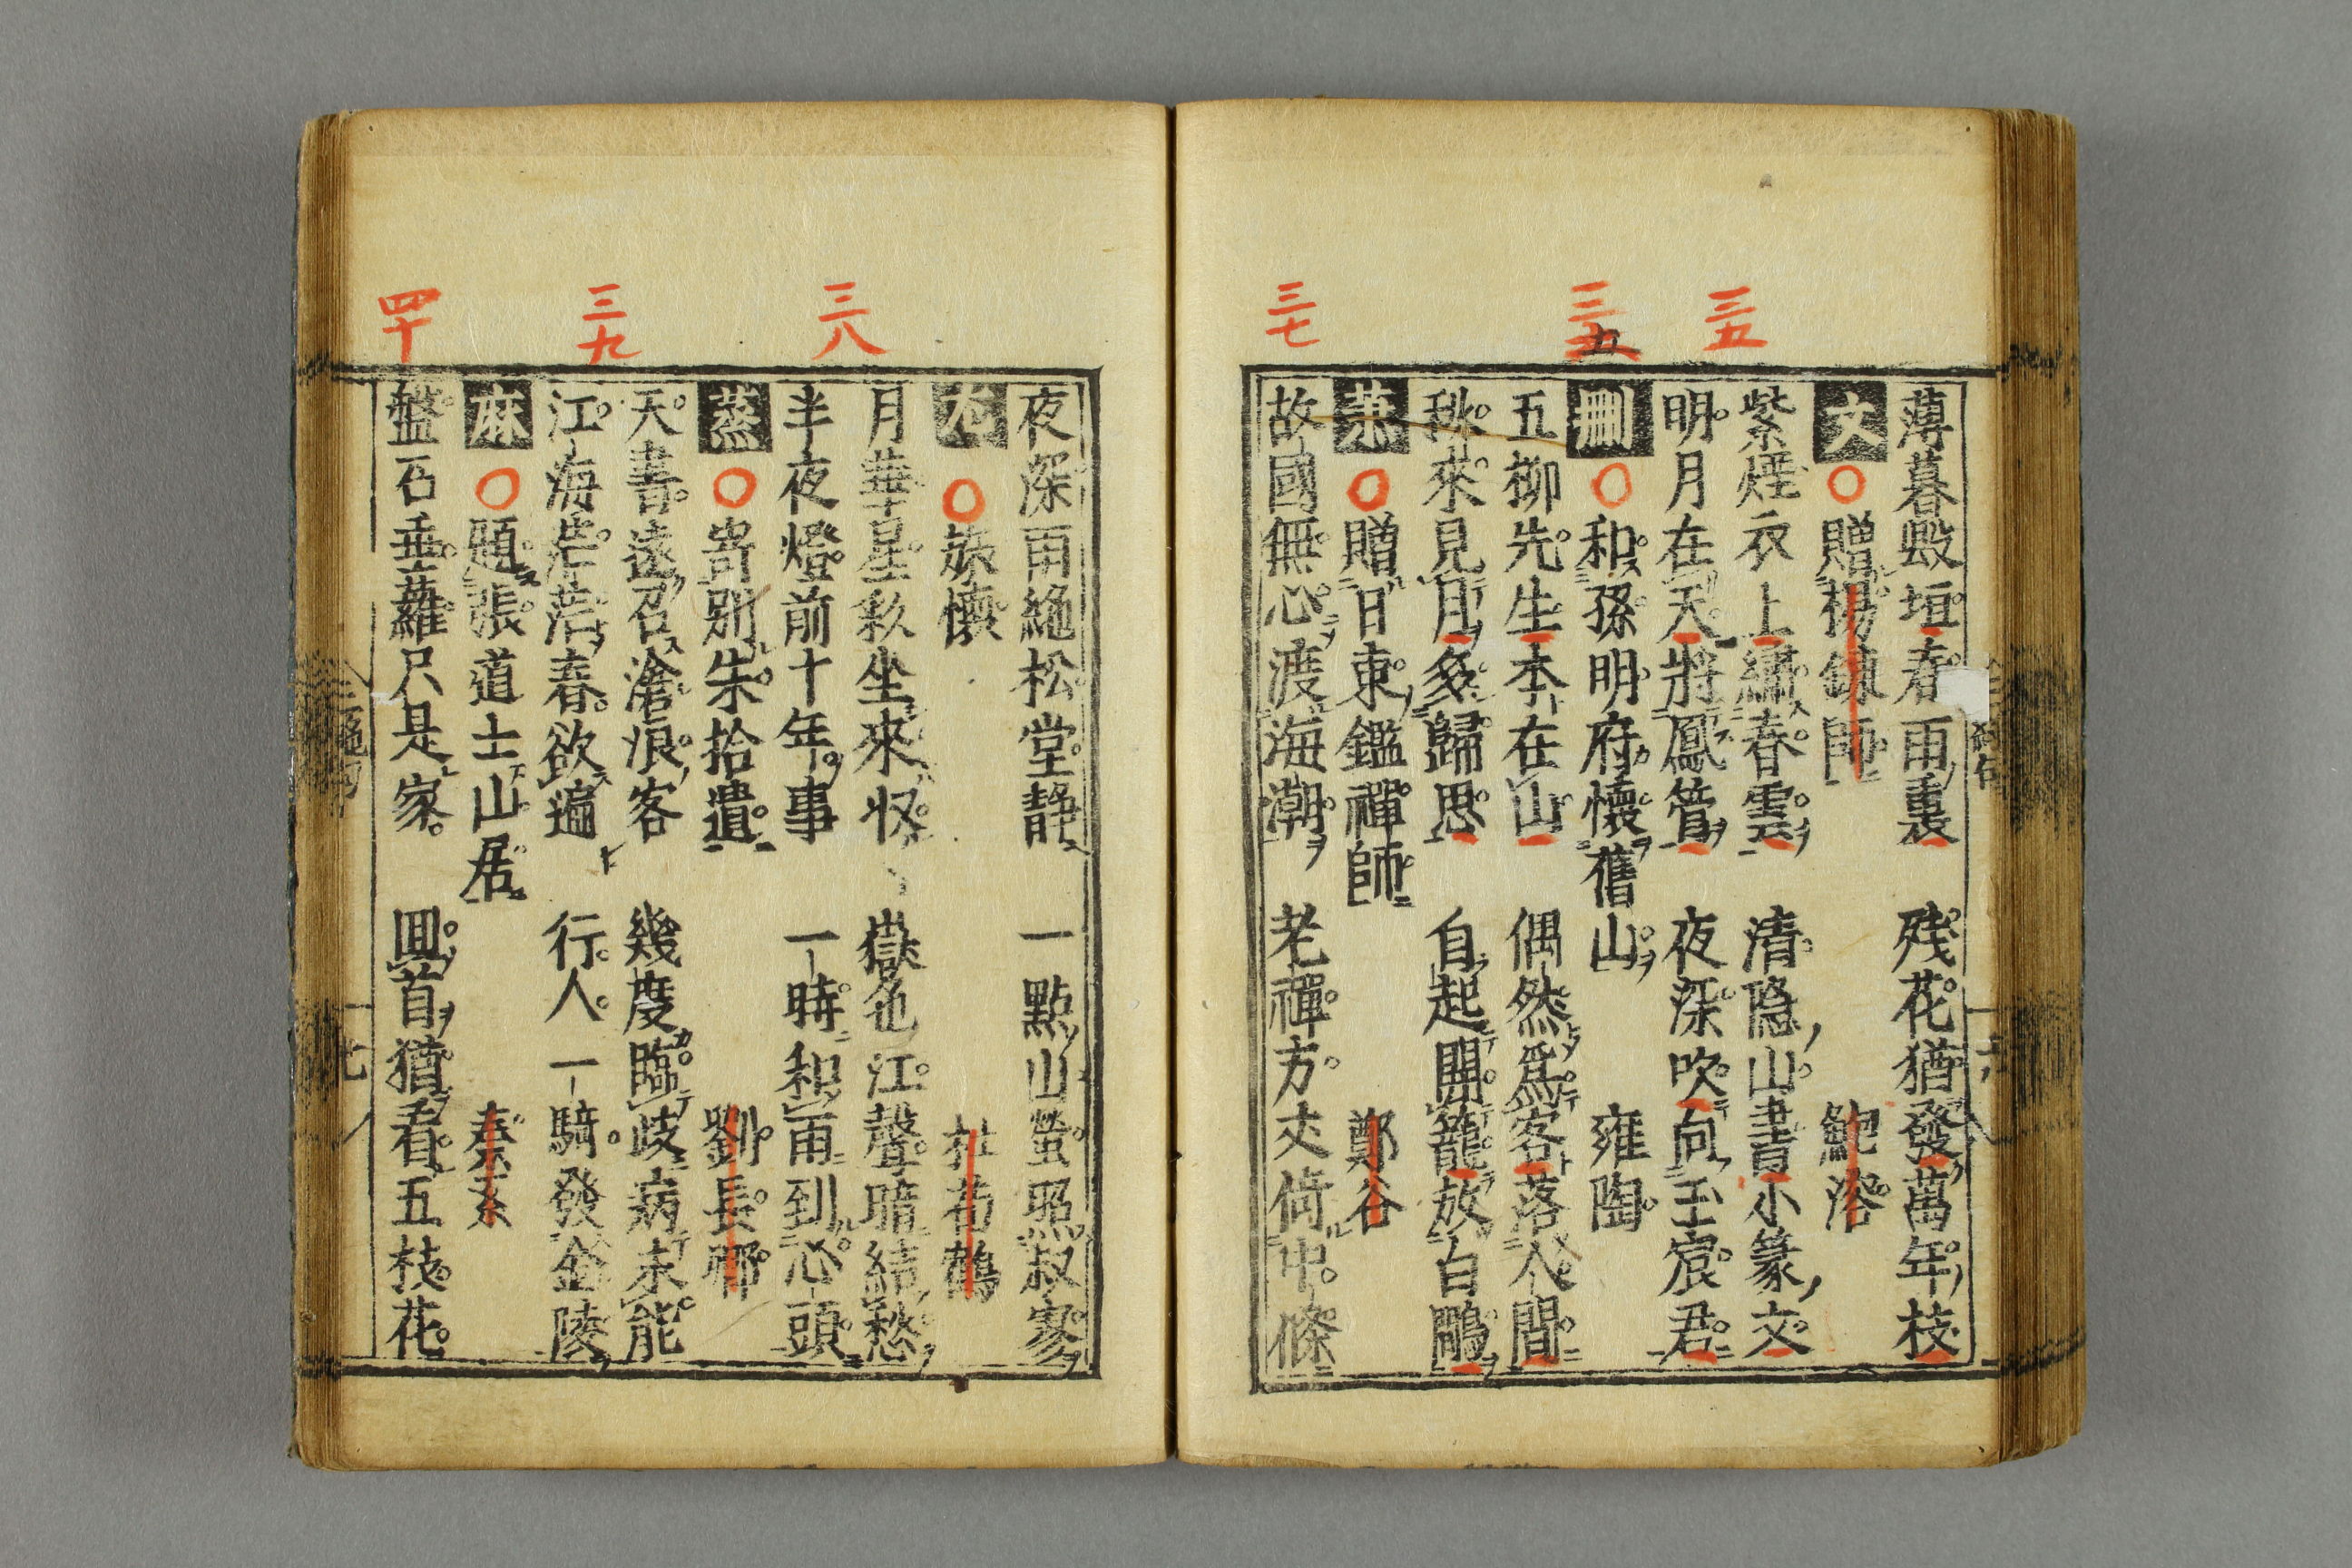 三五
三六
三七
薄暮毀垣春雨裏 殘花猶發萬年枝
文 贈楊鍊師 鮑溶
紫煙衣上繡春雲 清隱山書小篆文
明月在天將鳳管 夜深吹向玉宸君
刪 和孫明府懷舊山 雍陶
五柳先生本在山 偶然爲客落人間
秋來見月多歸思 自起開籠放白鷴
蕭 贈日東鑑禪師 鄭谷
故國無心渡海潮 老禪方丈倚中條
三八
三九
四十
夜深雨絶松堂静 一點山螢照寂寥
尤 旅懷 杜荀鶴
月華星彩坐來收 嶽色江聲暗結愁
半夜燈前十年事 一時和雨到心頭
蒸 寄別朱拾遺 劉長卿
天書遠召滄浪客 幾度臨岐病未能
江海茫茫春欲遍 行人一騎發金陵
麻 題張道士山居 秦系
盤石垂蘿只是家 回首猶看五枝花